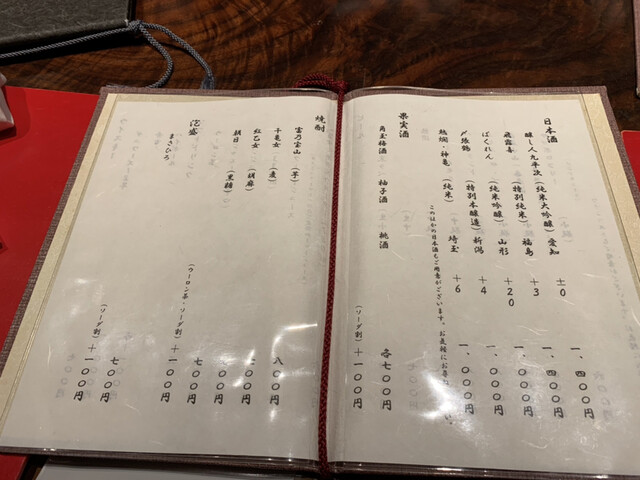 日本酒
醸し人九平次（純米大吟醸）愛知 ±0 一、四〇〇円
飛露喜（特別純米）福島 +3 一、四〇〇円
ばくれん（純米吟醸）山形 +20 一、〇〇〇円
〆張鶴（特別本醸造）新潟 +4 一、〇〇〇円
熱燗・神亀（純米）埼玉 +6 一、〇〇〇円
この他の日本酒もご用意がございます。お気軽にお尋ね
果実酒
角玉梅酒 柚子酒 桃酒 各七〇〇円
（ソーダ割）+一〇〇円
焼酎
富乃宝山（芋） 八〇〇円
千亀女（麦） 〇〇円
紅乙女（胡麻） 七〇〇円
朝日（黒糖） 七〇〇円
（ウーロン茶・ソーダ割）+一〇〇円
泡盛
まさひろ 七〇〇円
（ソーダ割）+一〇〇円